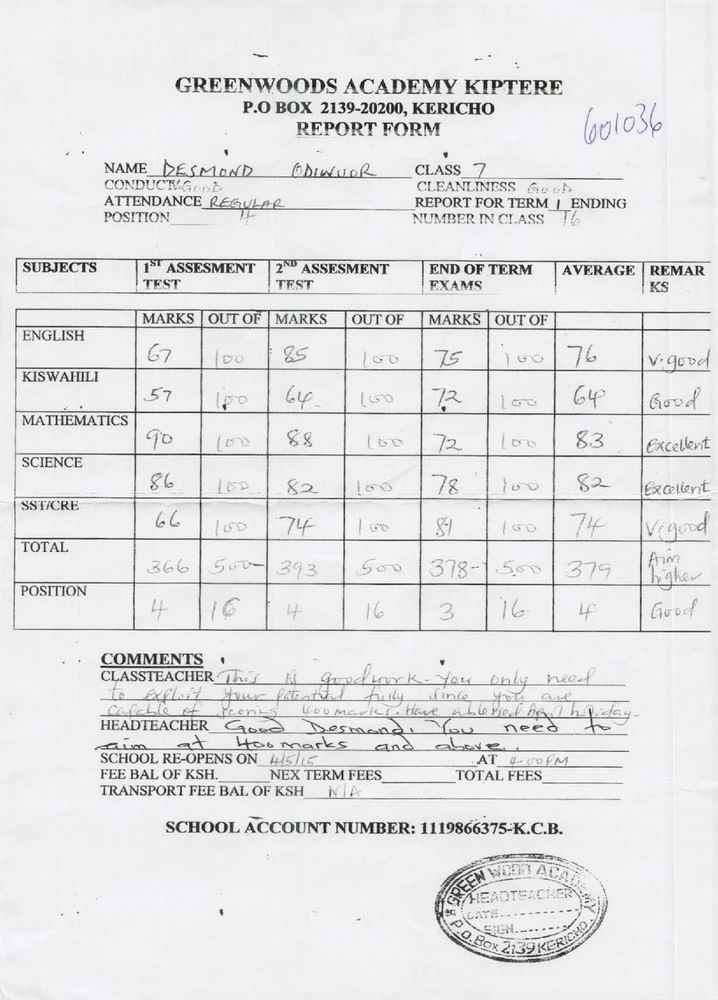 GREENWOODS ACADEMY KIPTERE
P.O BOX 2139-20200, KERICHO
REPORT FORM
601036
NAME DESMOND ODIWUOR CLASS 7
CONDUCT Good CLEANLINESS Good
ATTENDANCE REGULAR REPORT FOR TERM 1 ENDING
POSITION 4 NUMBER IN CLASS 16
SUBJECTS 1ST ASSESMENT TEST 2ND ASSESMENT TEST END OF TERM EXAMS AVERAGE REMARKS
MARKS OUT OF MARKS OUT OF MARKS OUT OF
ENGLISH 67 100 85 100 75 100 76 V.good
KISWAHILI 57 100 64 100 72 100 64 Good
MATHEMATICS 90 100 88 100 72 100 83 Excellent
SCIENCE 86 100 82 100 78 100 82 Excellent
SST/CRE 66 100 74 100 81 100 74 V.good
TOTAL 366 500 393 500 378 500 379 Aim higher
POSITION 4 16 4 16 3 16 4 Good
COMMENTS
CLASSTEACHER This is good work. You only need
to exploit your potential fully since you are
capable of scoring 400marks. Have a blessed holiday.
HEADTEACHER Good Desmond, You need to
aim at 400marks and above.
SCHOOL RE-OPENS ON 4/5/15 AT 4-00PM
FEE BAL OF KSH. NEX TERM FEES TOTAL FEES
TRANSPORT FEE BAL OF KSH N/A
SCHOOL ACCOUNT NUMBER: 1119866375-K.C.B.
GREEN WOOD ACADEMY
HEADTEACHER
DATE
SIGN
P.O. Box 2139 KERICHO